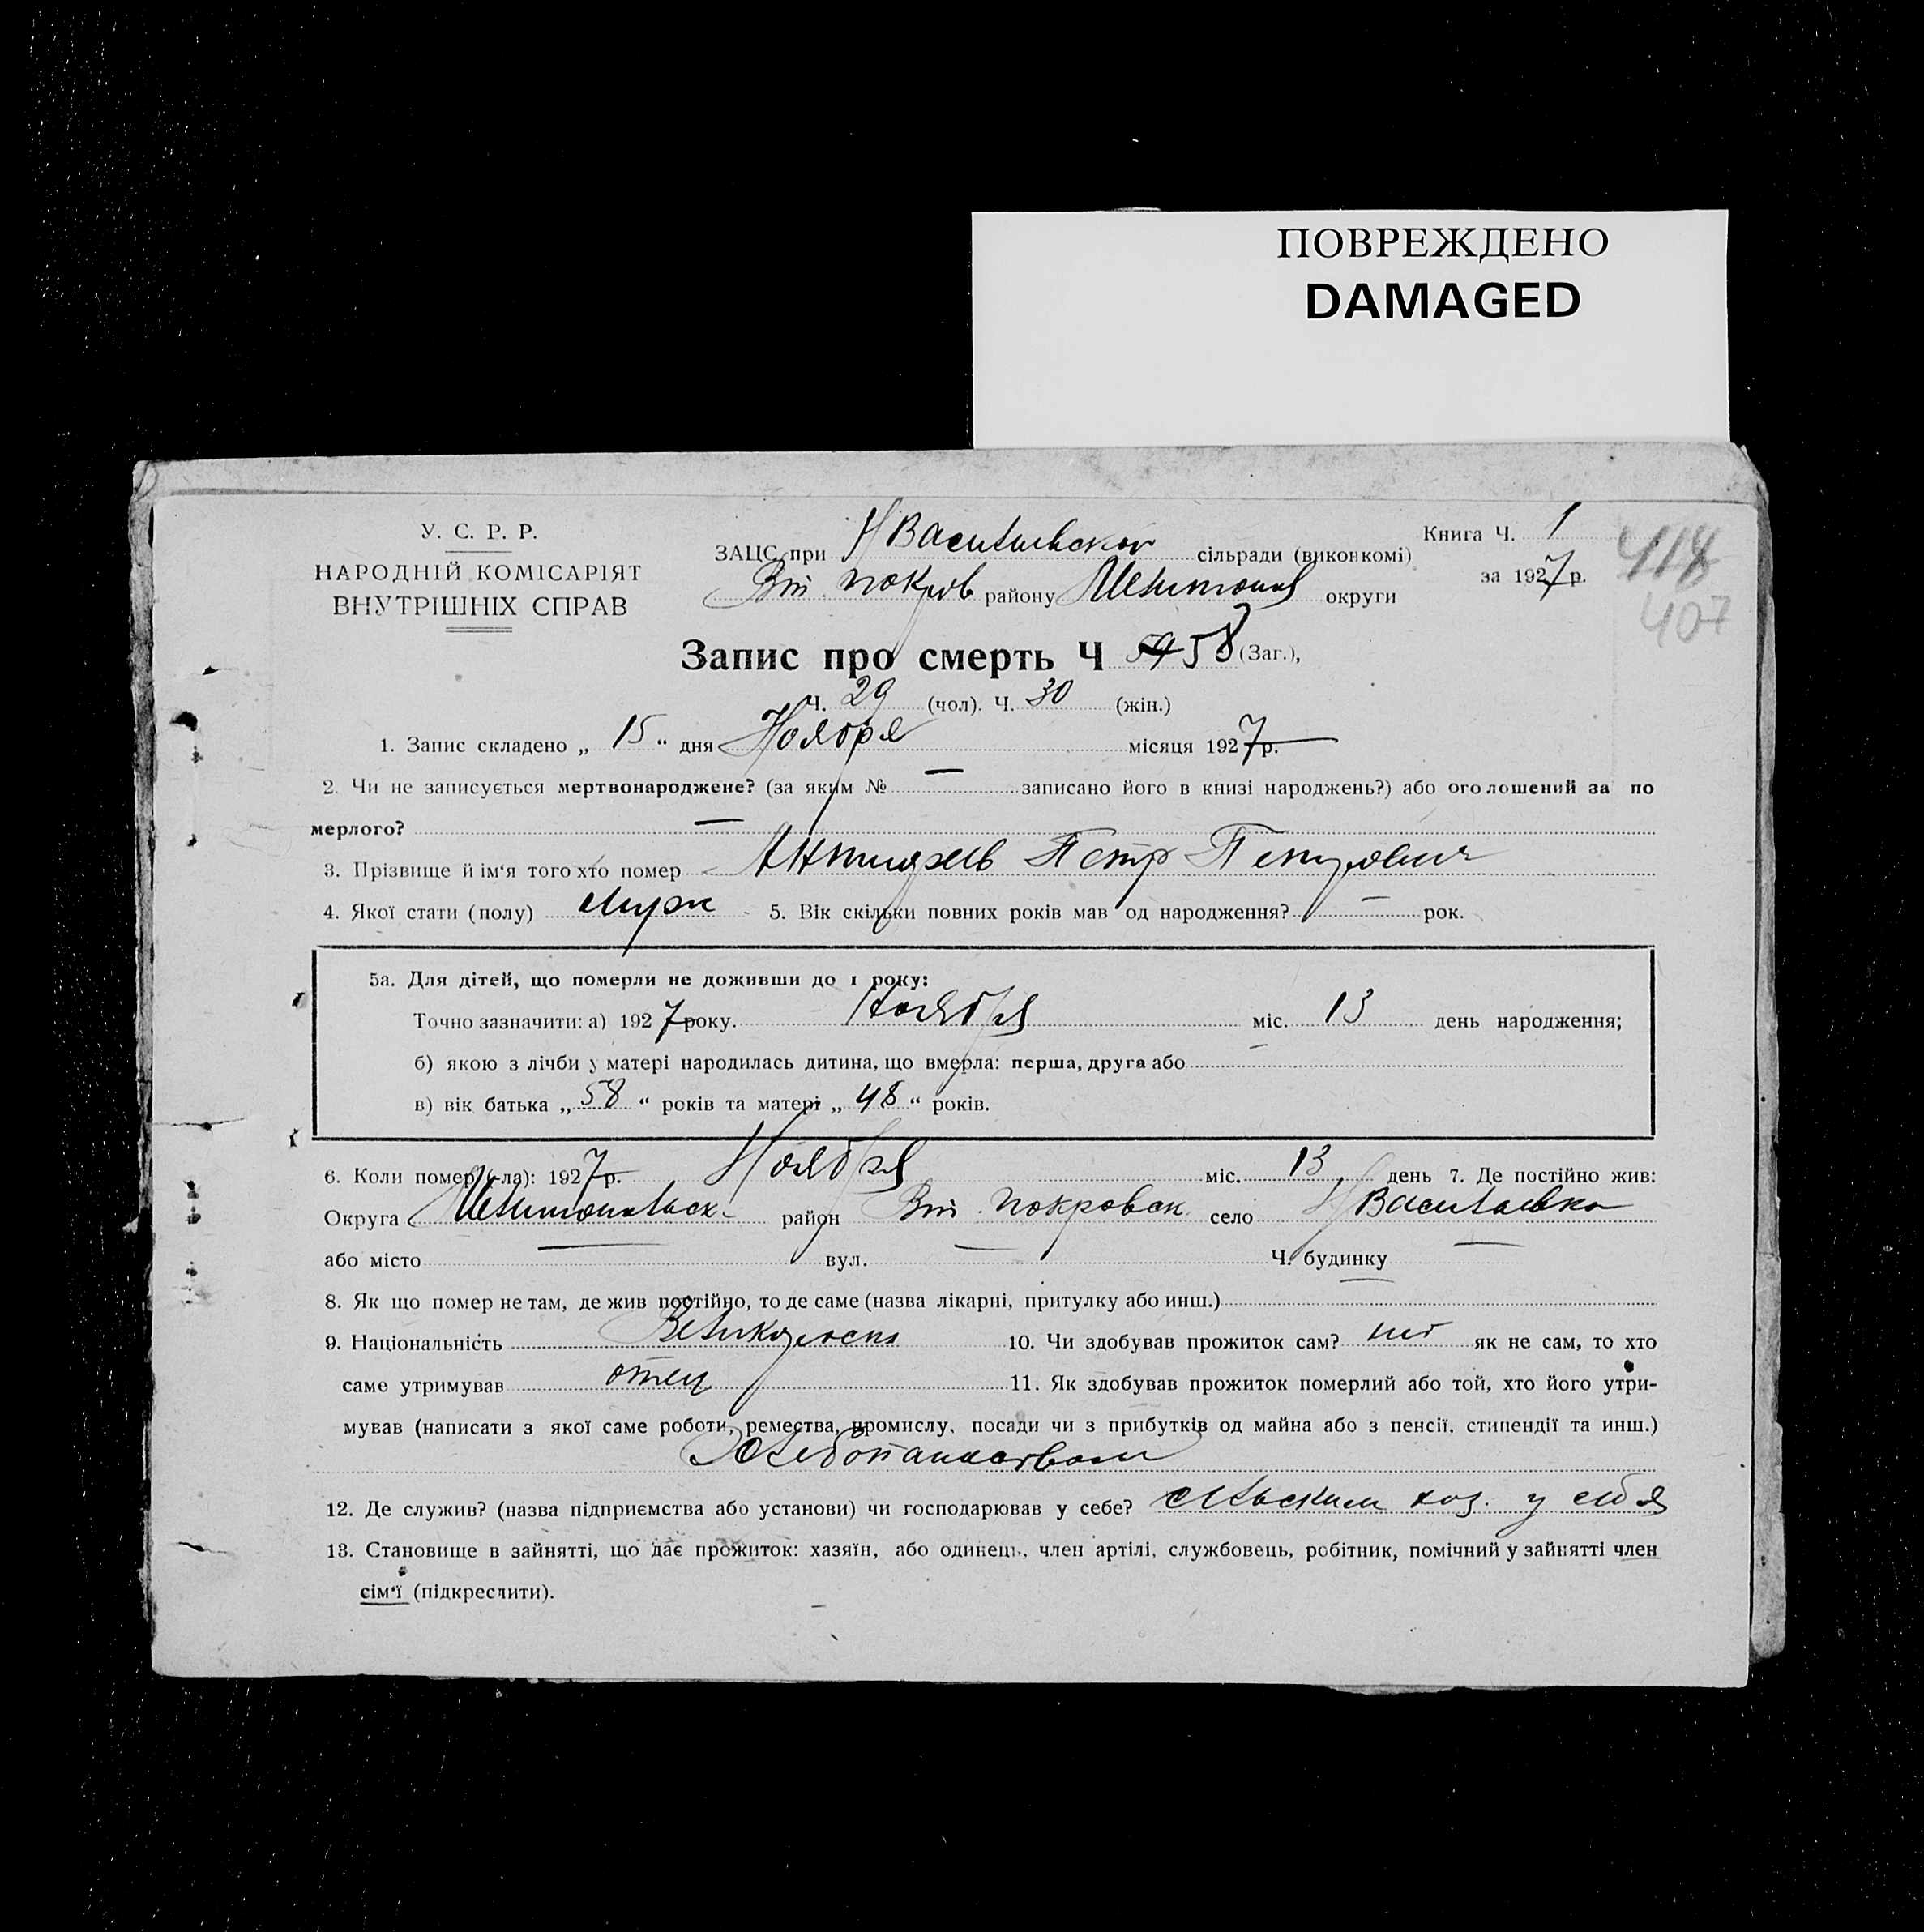 ПОВРЕЖДЕНО
DAMAGED
У. С. Р. Р.
НАРОДНІЙ КОМІСАРІЯТ
ВНУТРІШНІХ СПРАВ
ЗАЦС при Н Васильевской сільради (виконкомі)
Вт. покров району Мелитопол округи
Книга Ч. 1
за 1927 р.
418
407
Запис про смерть Ч 58 (Заг.),
Ч. 29 (чол). Ч. 30 (жін.)
1. Запис складено „ 15 “ дня Ноября місяця 1927 р.
2. Чи не записується мертвонароджене? (за яким № — записано його в книзі народжень?) або оголошений за по
мерлого? —
3. Прізвище й ім'я того хто помер Петр Петрович
4. Якої стати (полу) муж 5. Вік скільки повних років мав од народження? — рок.
5а. Для дітей, що померли не доживши до 1 року:
Точно зазначити: а) 1927 року. Ноября міс. 13 день народження;
б) якою з лічби у матері народилась дитина, що вмерла: перша, друга або —
в) вік батька „ 58 “ років та матері „ 48 “ років.
6. Коли помер (-ла): 1927 р. Ноября міс. 13 день 7. Де постійно жив:
Округа Мелитопольск. район Вт. покровск село Н Васильевка
або місто — вул. — Ч. будинку —
8. Як що помер не там, де жив постійно, то де саме (назва лікарні, притулку або инш.) —
9. Національність Великоросс 10. Чи здобував прожиток сам? нет як не сам, то хто
саме утримував отец 11. Як здобував прожиток померлий або той, хто його утри-
мував (написати з якої саме роботи, ремества, промислу, посади чи з прибутків од майна або з пенсії, стипендії та инш.)
Хлебопашеством
12. Де служив? (назва підприємства або установи) чи господарював у себе? сельским хоз. у себя
13. Становище в зайнятті, що дає прожиток: хазяїн, або одинець, член артілі, службовець, робітник, помічний у зайнятті член
сім'ї (підкреслити).